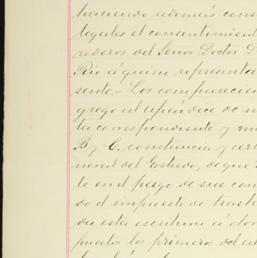 haciendo además cons
legales el consentimient
rederos del Señor Doctor D
Pio á quien representa
senta.- Los comparecien
gregó al apéndice de m
ta correspondiente y m
B y C, constancia y cer
neral del Estado, de que
te en el pago de sus con
do el impuesto de trasla
da esta escritura á don
puestos los primeros del